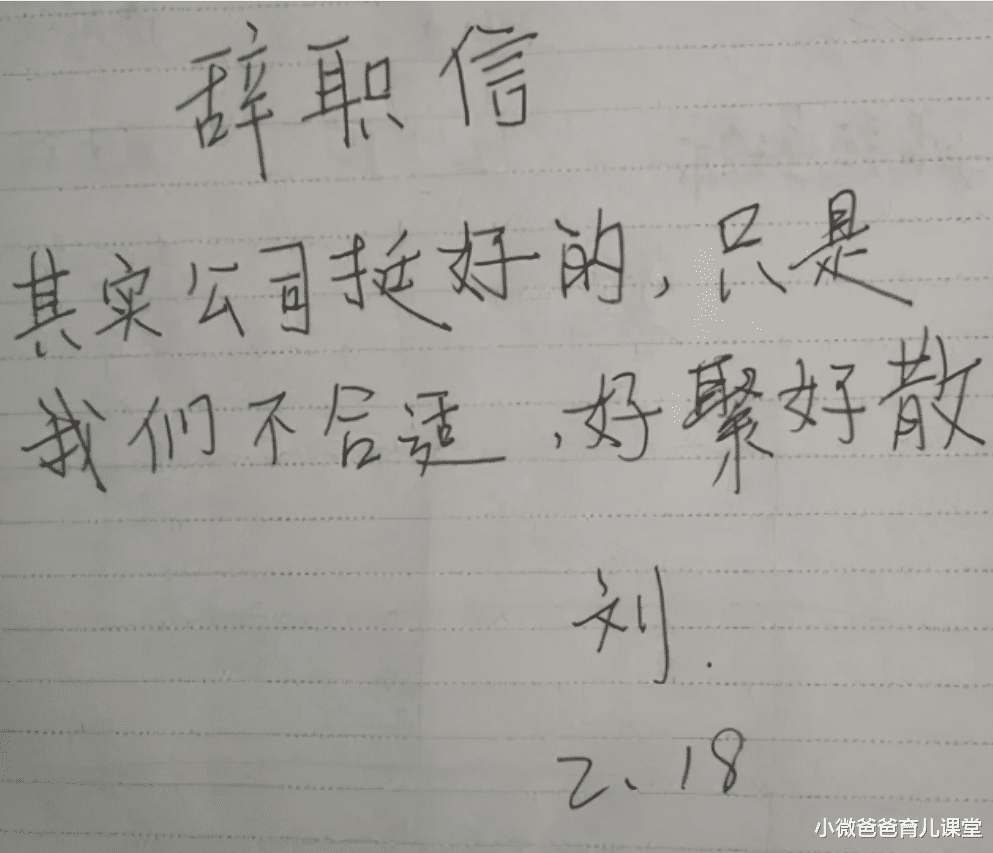 辞职信
其实公司挺好的,只是
我们不合适,好聚好散
刘.
2、18
小微爸爸育儿课堂